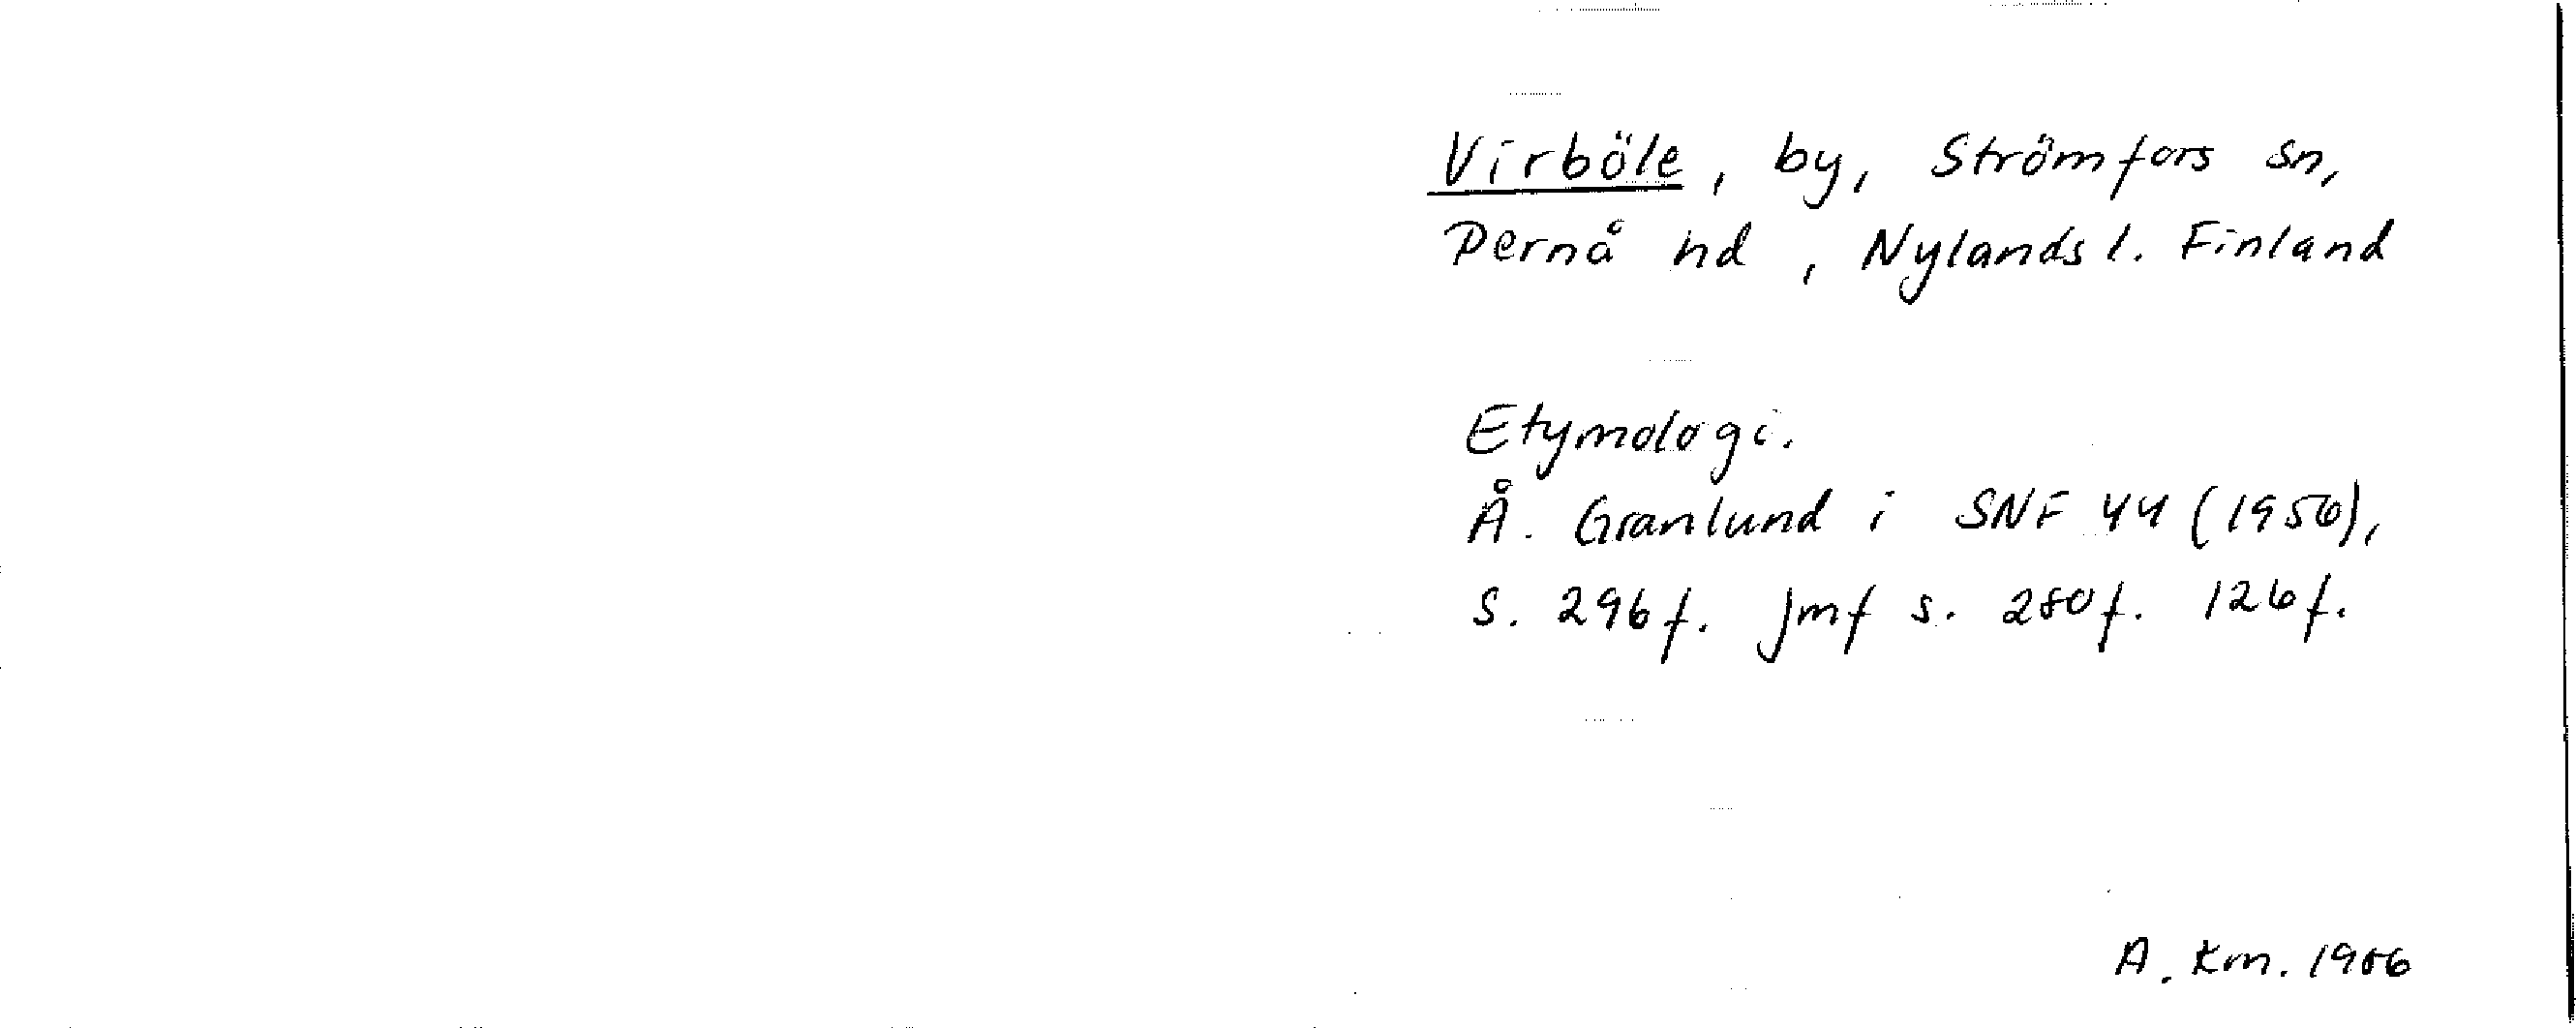 Virböle, by, Strömfors sn,
Pernå hd, Nylands l. Finland
Etymologi.
Å. Granlund i SNF 44 (1956),
s. 296f. jmf s. 280f. 126f.
A. Km. 1986